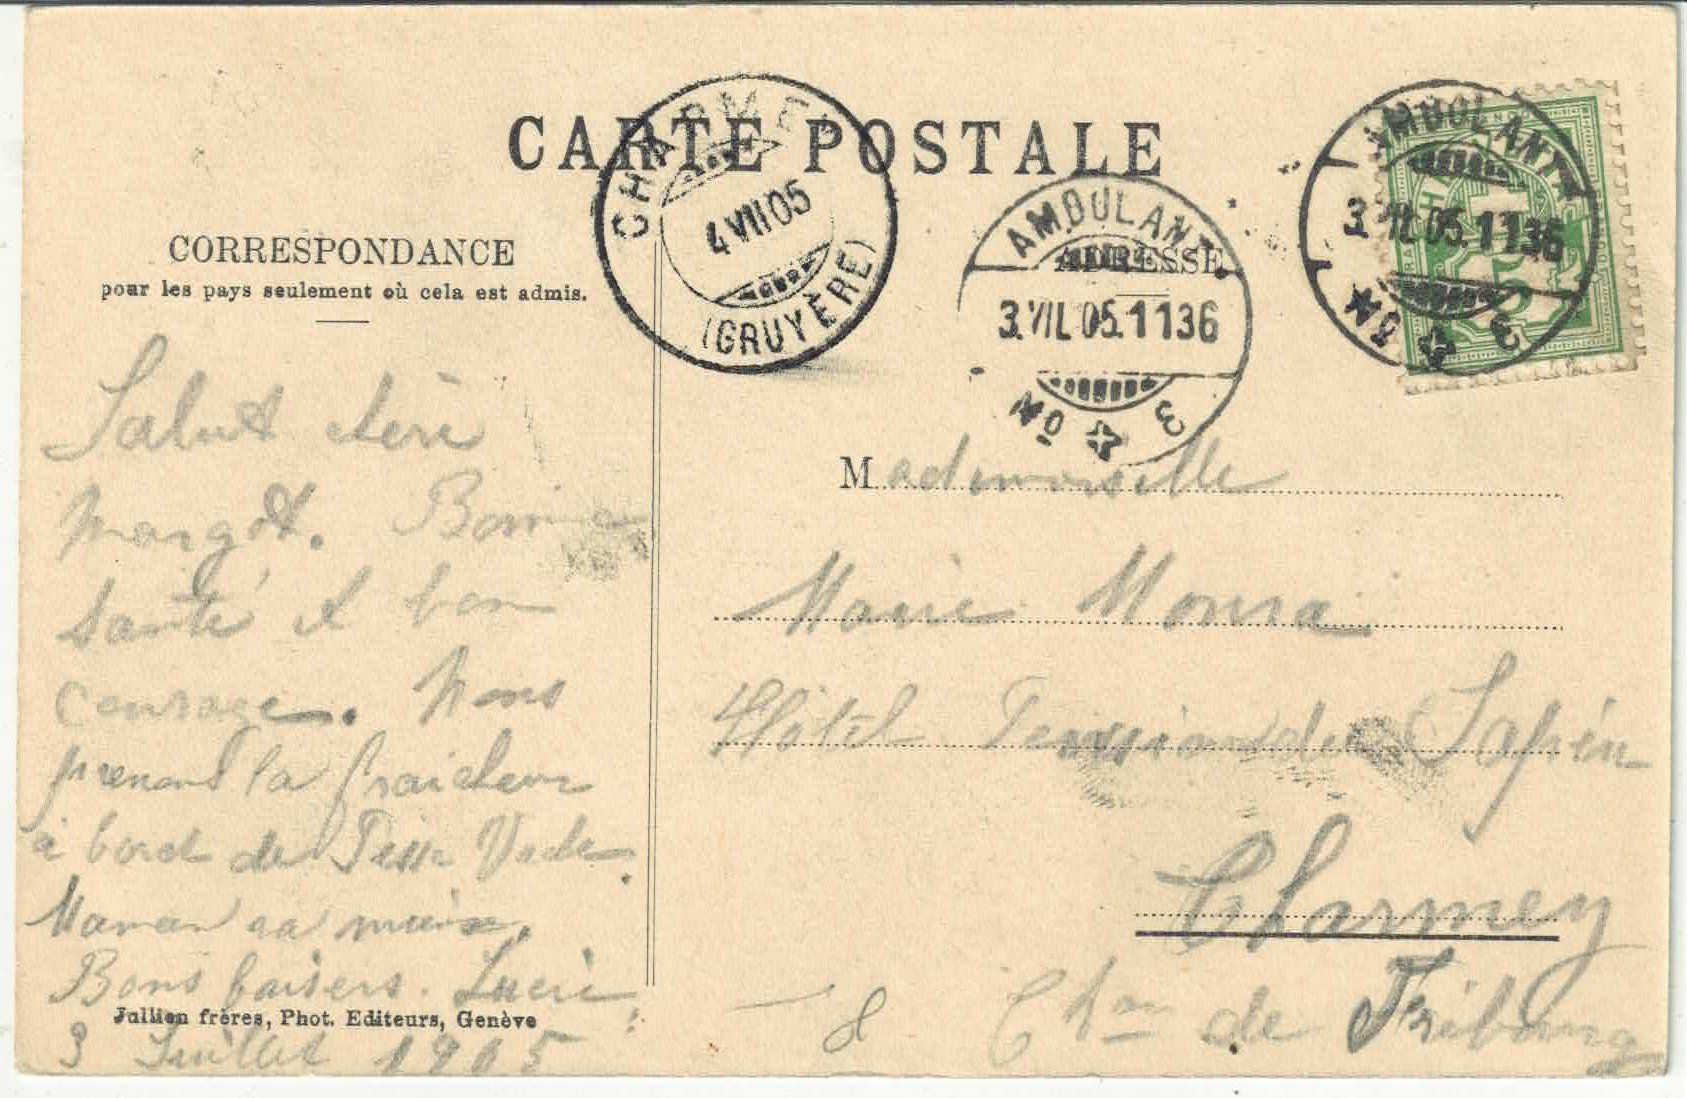 CARTE POSTALE
CHARMEY
4 VII 05
(GRUYÈRE)
AMBULANT
3.VII.05.1136
3
AMBULANT
3.VII.05.1136
3
CORRESPONDANCE
pour les pays seulement où cela est admis.
ADRESSE
Salut chère
Margot. Bonne
santé et bon
courage. Nous
prenons la fraicheur
à bord de
Maman va mieux.
Bons baisers. Lucie
3 Juillet 1905
Jullien frères, Phot. Editeurs, Genève
Mademoiselle
Marie
Hôtel Pension du Sapin
Charmey
Cton de Fribourg